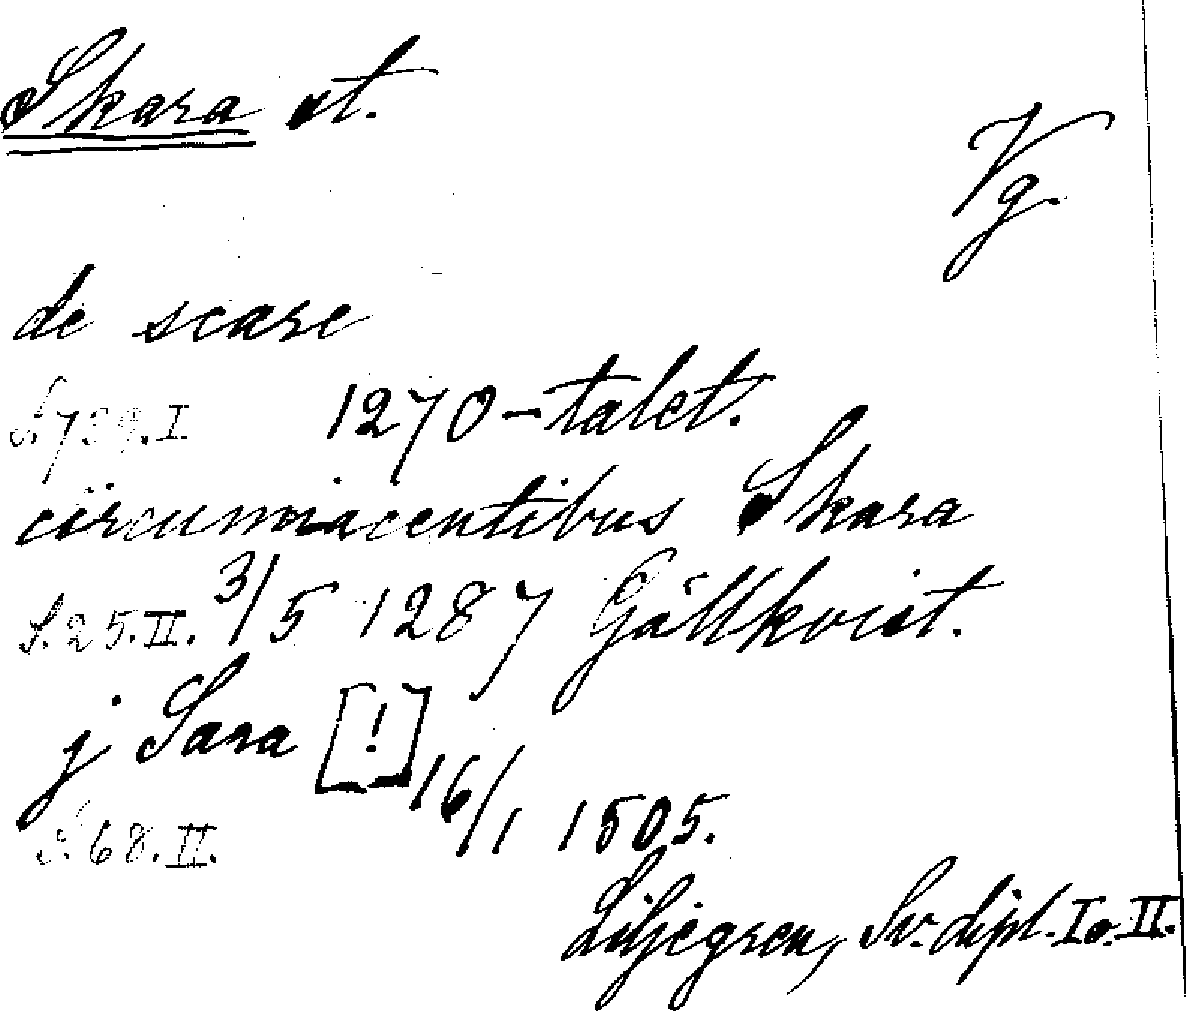 Skara st.
Vg.
de scare
S. 739. I 1270-talet.
circumiacentibus Skara
S. 25. II. 3/5 1287 Gällkvist.
j Sara [!] 16/1 1505.
S. 68. II.
Liljegren, Sv. dipl. I o. II.